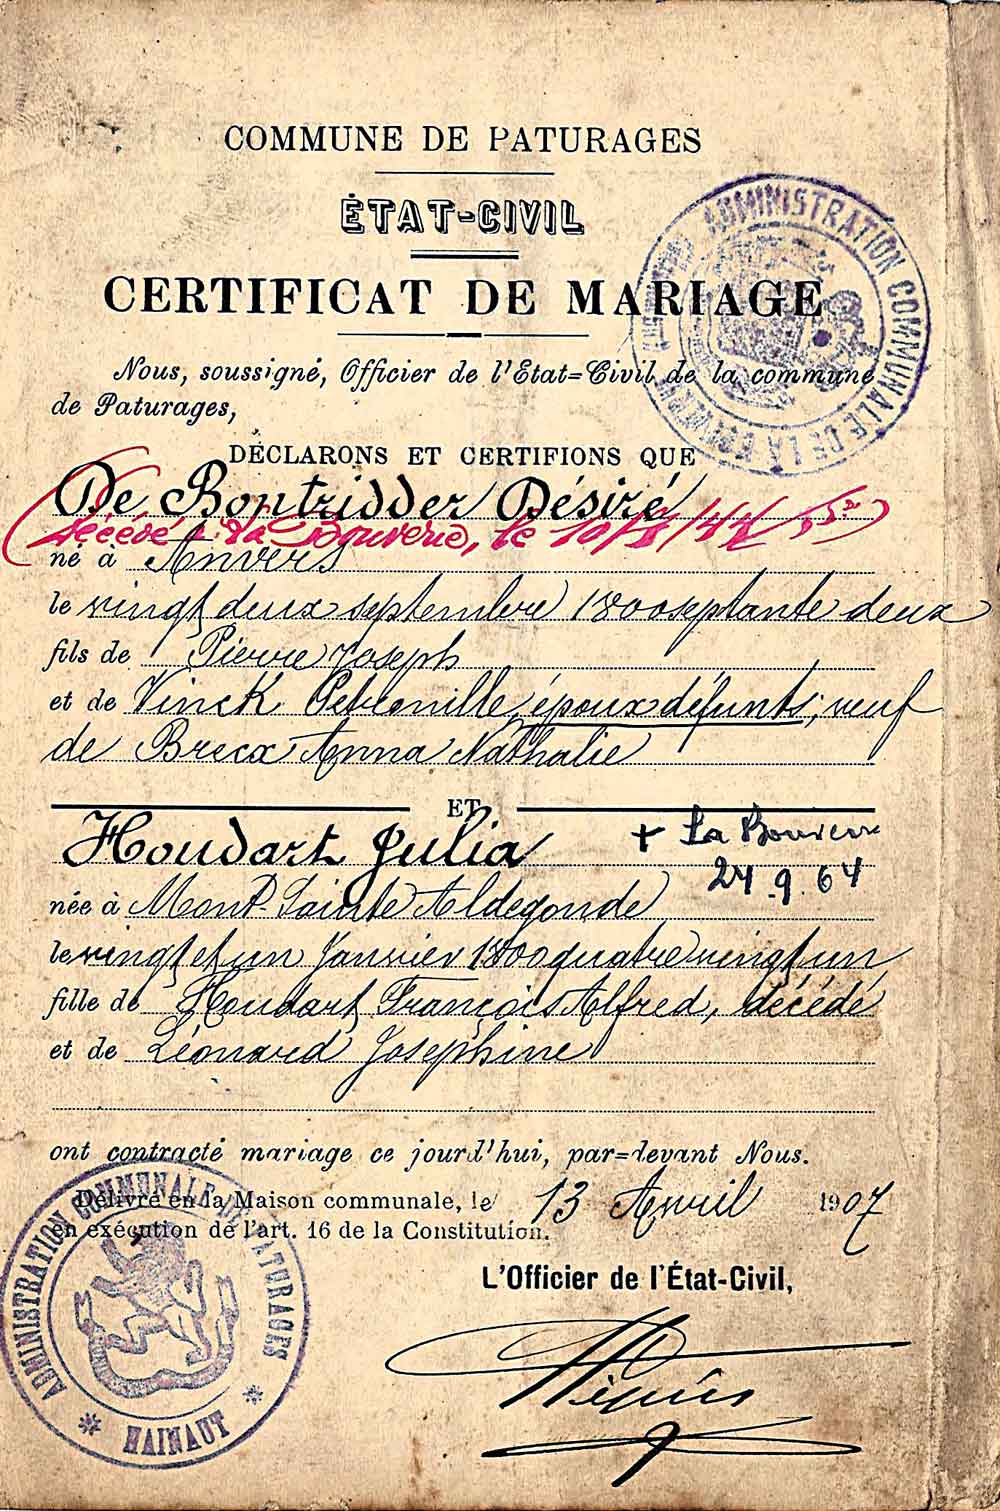 COMMUNE DE PATURAGES
ÉTAT-CIVIL
CERTIFICAT DE MARIAGE
ADMINISTRATION COMMUNALE DE LA BOUVERIE
Nous, soussigné, Officier de l'Etat=Civil de la commune
de Paturages,
DÉCLARONS ET CERTIFIONS QUE
De Bontridder Désiré
(décédé à La Bouverie, le 10
né à Anvers
le vingt deux septembre 1800 septante deux
fils de Pierre Joseph
et de Vinck Petronille, époux défunts; veuf
de Brecx Anna Nathalie
ET
Houdart Julia
+ La Bouverie
24.9.64
née à Mont-Sainte Aldegonde
le vingt et un Janvier 1800 quatre vingt un
fille de Houdart François Alfred, décédé
et de Léonard Josephine
ont contracté mariage ce jourd'hui, par=devant Nous.
Délivré en la Maison communale, le 13 Avril 1907
en exécution de l'art. 16 de la Constitution.
L'Officier de l'État-Civil,
ADMINISTRATION COMMUNALE DE PATURAGES
* HAINAUT *